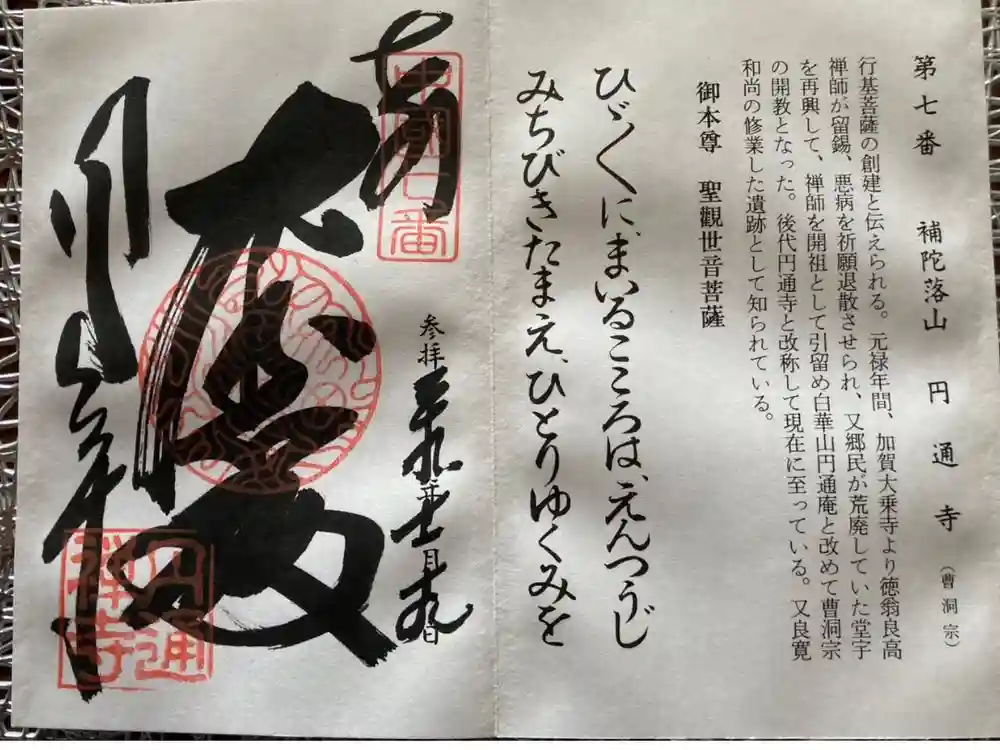 第七番 補陀落山 円通寺 (曹洞宗)
行基菩薩の創建と伝えられる。元禄年間、加賀大乗寺より徳翁良高
禅師が留錫、悪病を祈願退散させられ、又郷民が荒廃していた堂宇
を再興して、禅師を開祖として引留め白華山円通庵と改めて曹洞宗
の開教となった。後代円通寺と改称して現在に至っている。又良寛
和尚の修業した遺跡として知られている。
御本尊 聖觀世音菩薩
ひゞ〱に、まいるこころは、えんつうじ
みちびきたまえ、ひとりゆくみを
中國七番
参拝
月
日
円通
禅寺